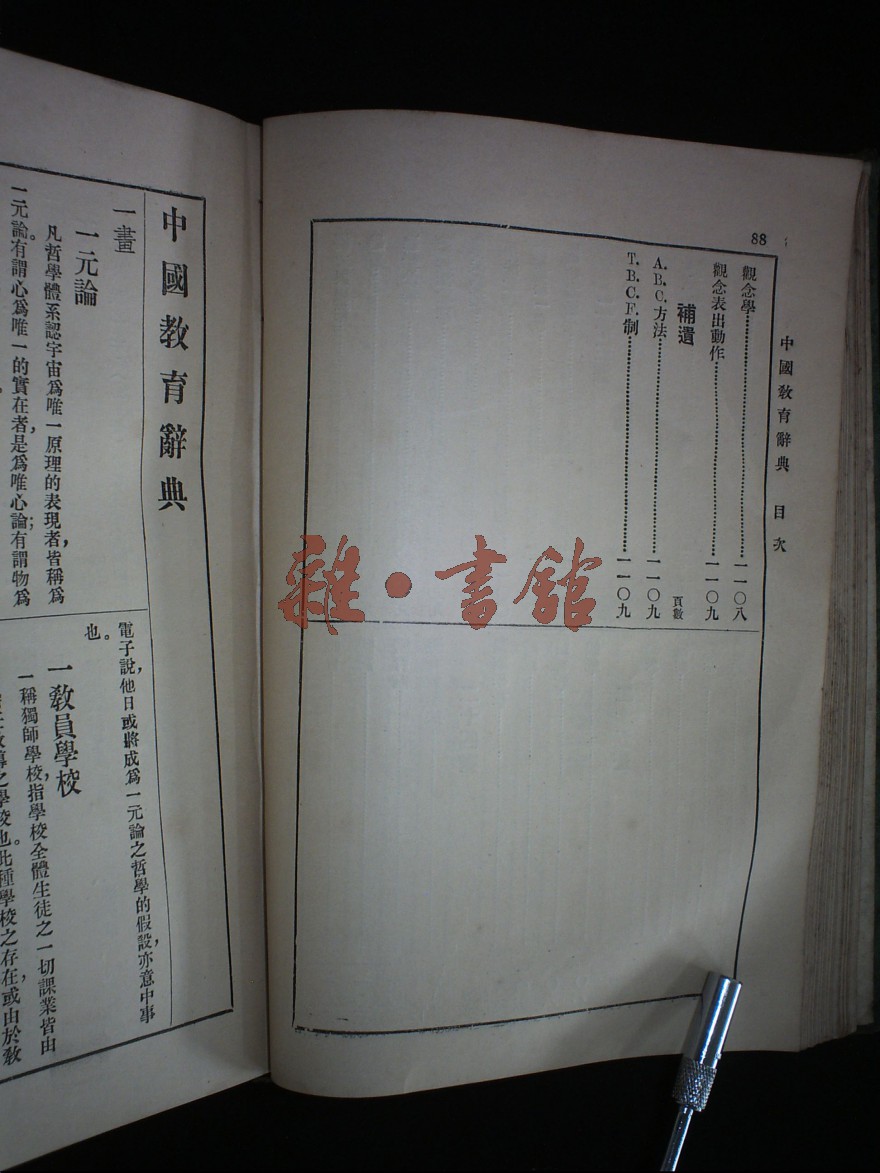 88
中國教育辭典 目次
觀念學……一一〇八
觀念表出動作……一一〇九
補遺 頁數
A.B.C.方法……一一〇九
T.B.C.F.制……一一〇九
中國教育辭典
一畫
一元論
凡哲學體系認宇宙爲唯一原理的表現者,皆稱爲
一元論。有謂心爲唯一的實在者,是爲唯心論;有謂物爲
電子說,他日或將成爲一元論之哲學的假設,亦意中事
也。
一教員學校
一稱獨師學校,指學校全體生徒之一切課業皆由
之學校也。此種學校之存在,或由於教
雜·書館